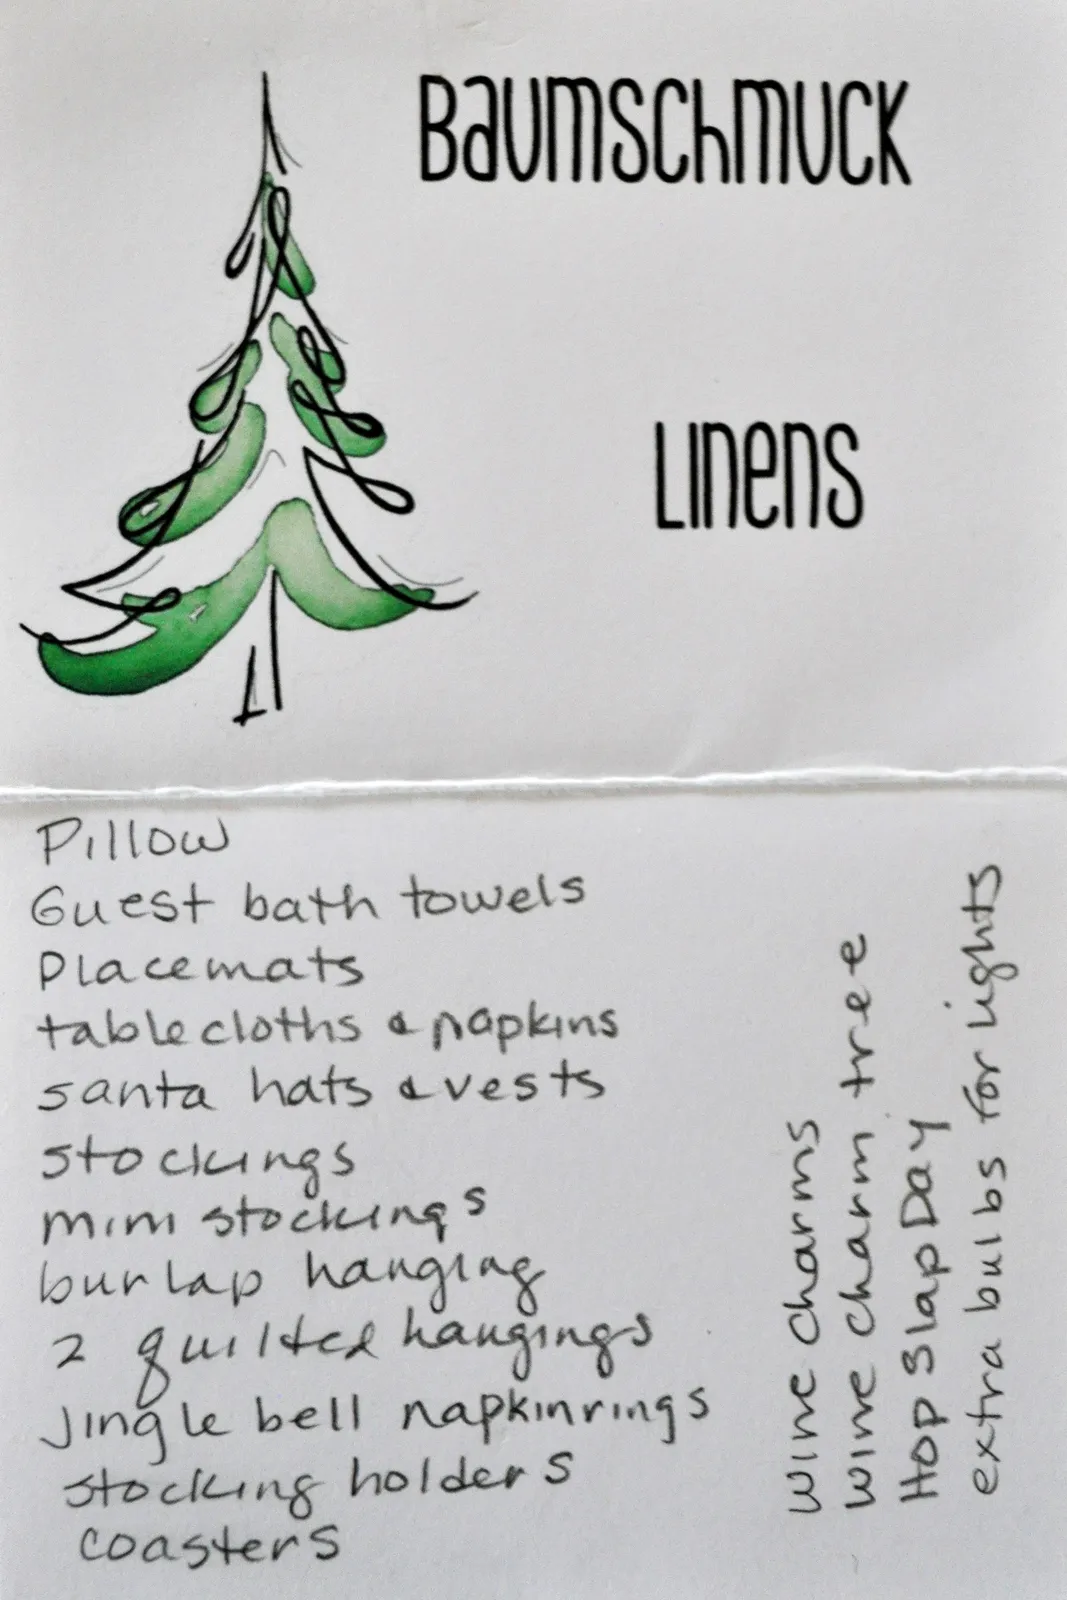 Baumschmuck
Linens
Pillow
Guest bath towels
Placemats
tablecloths & napkins
santa hats & vests
stockings
mini stockings
burlap hanging
2 quilted hangings
Jingle bell napkinrings
stocking holders
coasters
wine charms
wine charm tree
HopSlapDay
extra bulbs for lights